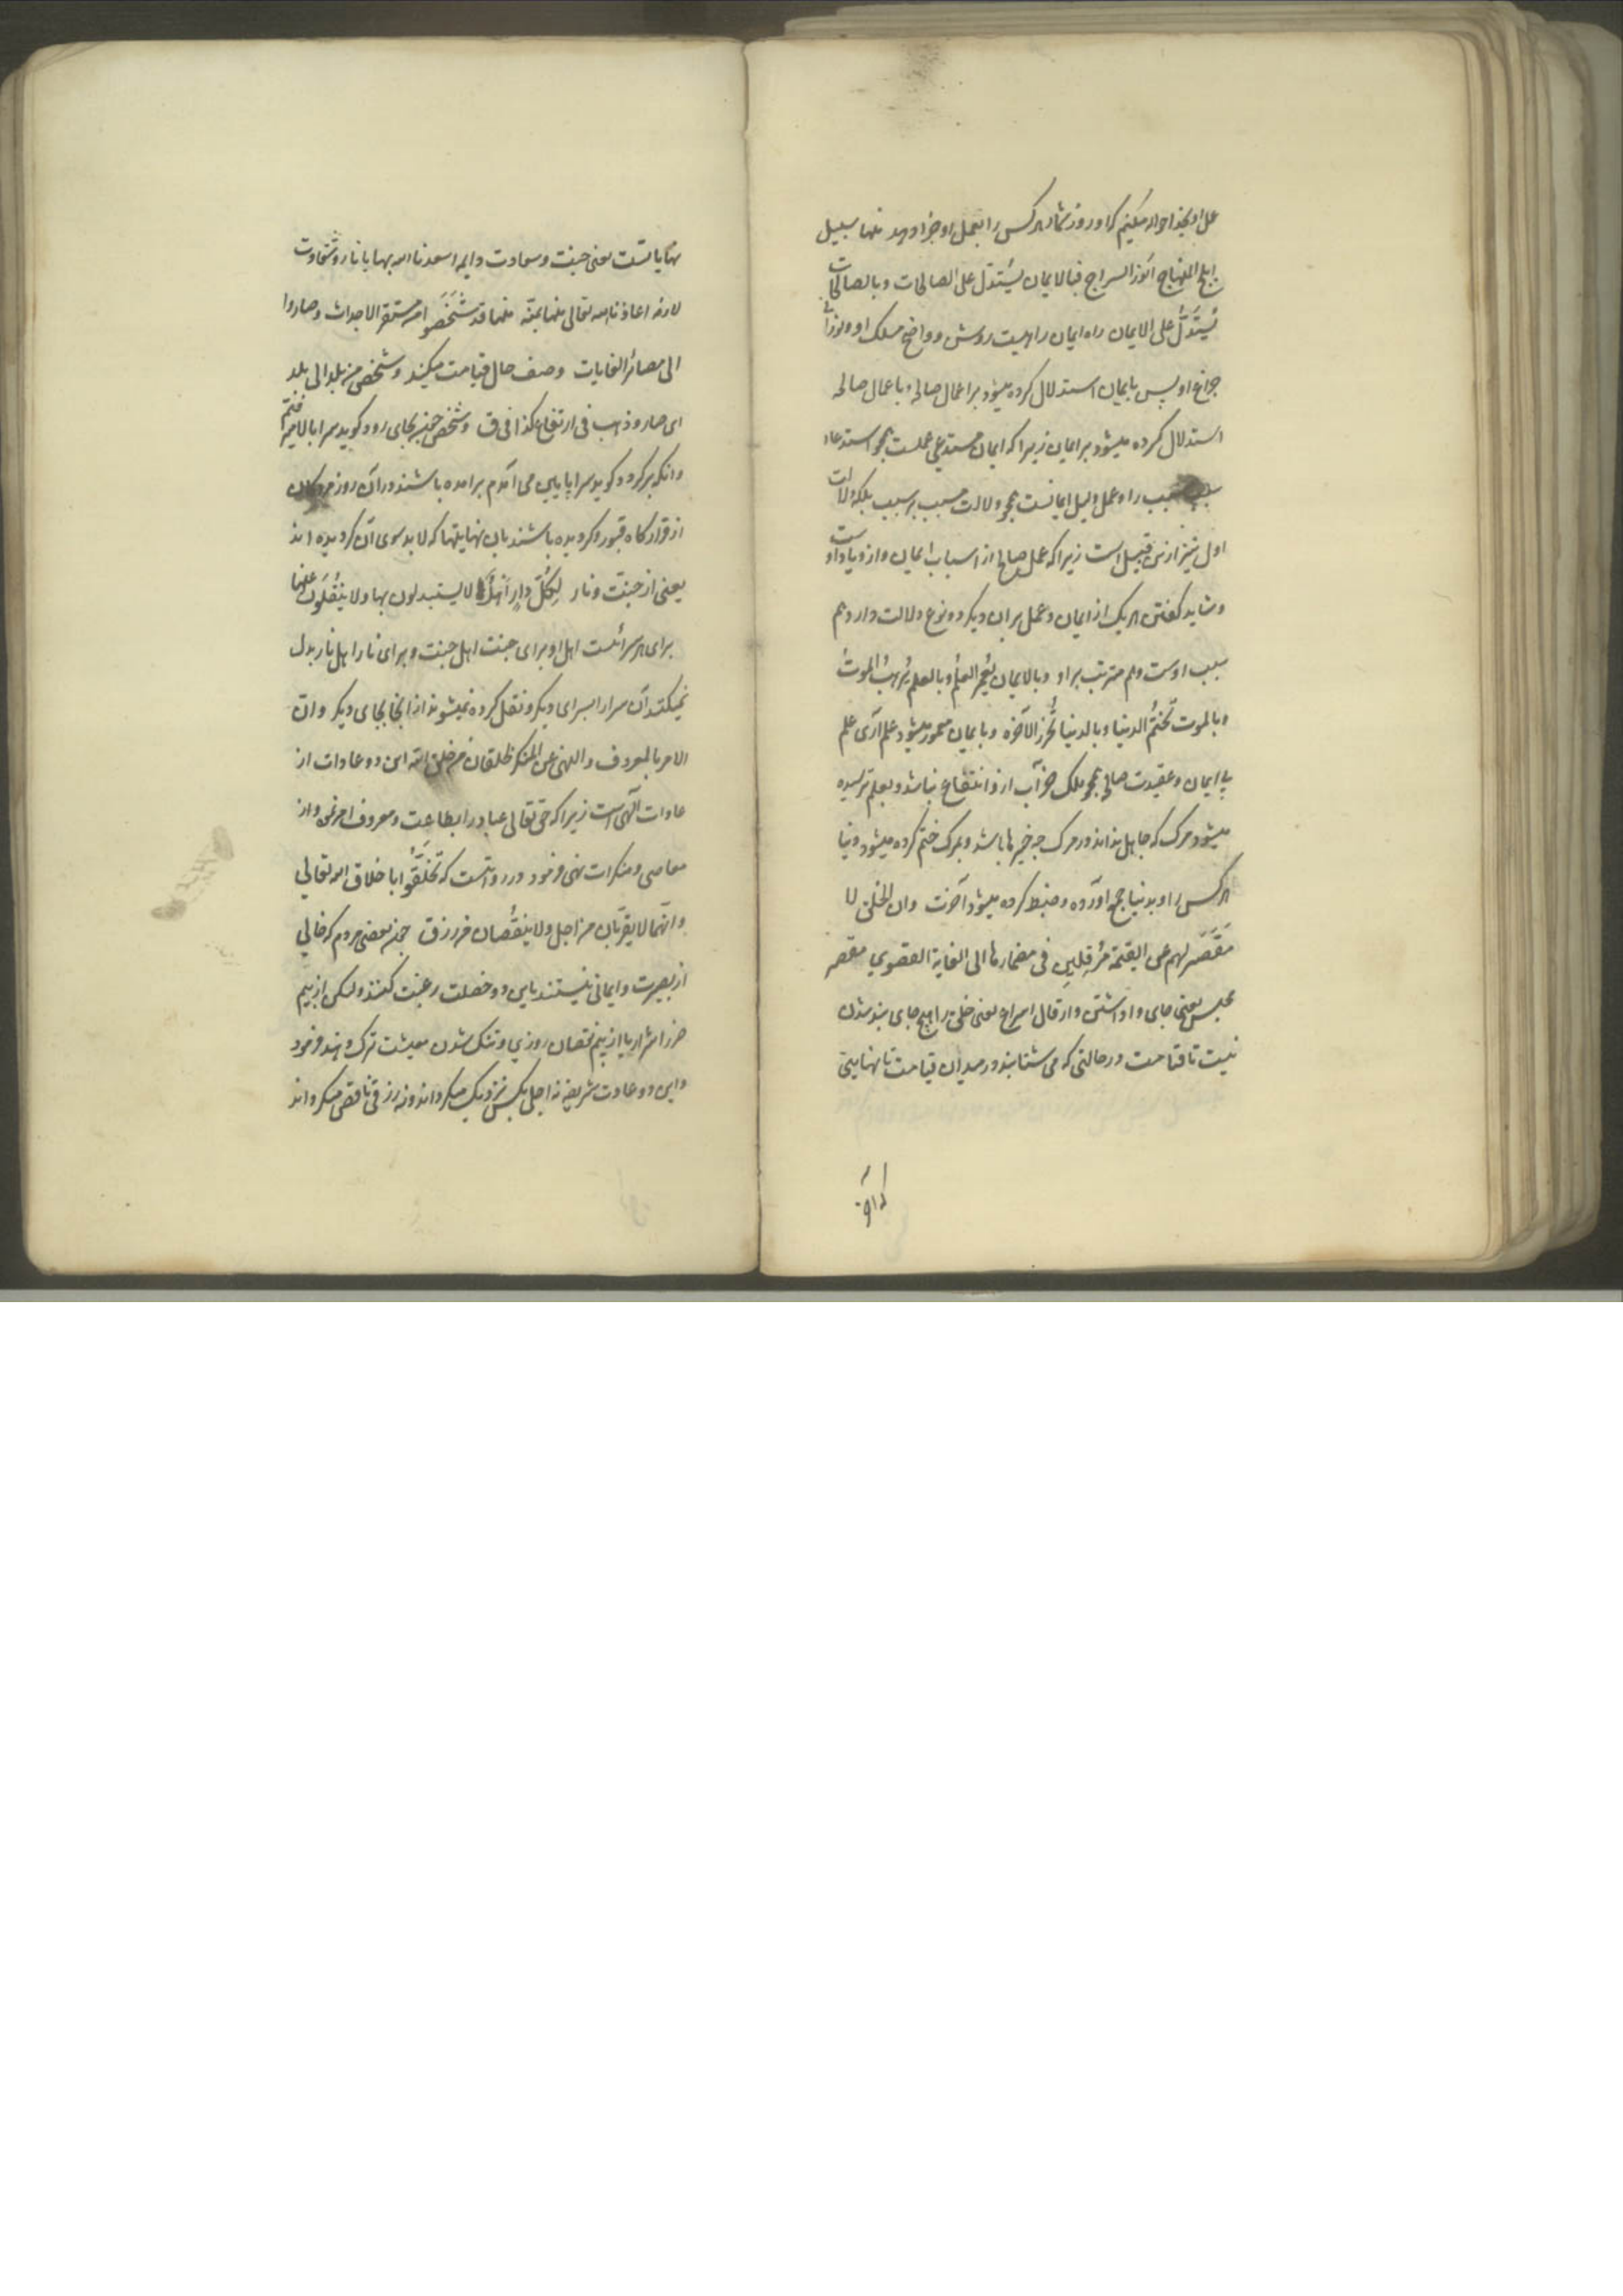 عمل او بخدا حواله میکنیم که او روز شمار هر کس را بعمل او جزا دهد منها سبیل
ابلج المنهاج انور السراج فبالایمان یُستدلّ علی الصالحات و بالصالحات
یُستدلُّ علی الایمان راه ایمان راهیست روشن و واضح مسلک او و نورانی
چراغ او پس بایمان استدلال کرده میشود بر اعمال صالحه و باعمال صالحه
استدلال کرده میشود بر ایمان زیرا که ایمان مستدعی عملست همچو استدعاء
سبب مسبب را و عمل دلیل ایمانست همچو دلالت مسبب بر سبب بلکه دلالت
اول نیز ازین قبیل است زیرا که عمل صالح از اسباب ایمان و ازدیاد اوست
و شاید گفتن هر یک از ایمان و عمل بران دیگر دو نوع دلالت دارد هم
سبب اوست و هم مترتب بر او و بالایمان یُعمر العلمُ و بالعلم یُرهبُ الموتُ
و بالموت تُختمُ الدنیا و بالدنیا تُحرز الآخرة و بایمان معمور میشود علم آری علم
بی ایمان و عقیدت صالح همچو ملک خراب ازو انتفاع نباشد و بعلم ترسیده
میشود مرگ که جاهل نداند در مرگ چه خبرها باشد و بمرگ ختم کرده میشود دنیا
هر کس را و بدنیا جمع آورده و ضبط کرده میشود آخرت و ان الخلق لا
مَقصَرَ لهم عن القیمة مُرقلین فی مضمارها الی الغایة القصوی مقصر
محبس یعنی جای واداشتن و ارقال اسراع یعنی خلق را هیچ جای بند شدن
نیست تا قیامت در حالتی که می شتابند در میدان قیامت تا نهایتی
که آن
نهایاتست یعنی جنت و سعادت دایمه اسعدنا الله بها یا نار و شقاوت
لازمه اعاذنا الله تعالی منها بمنّه منها قد شَخَصُوا من مستقر الاجداث و صاروا
الی مصائر الغایات وصف حال قیامت میکند و شخص من بلد الی بلد
ای صار و ذهب فی ارتفاع کذا فی ق و شخص جز بجای رود گوید سرا بالا میر
وانکه برگردد گوید سراپایین می آمدم برامده باشند در آن روز مردگان
از قرارگاه قبور و گردیده باشند بان نهایتها که لابد سوی آن گردیده اند
یعنی از جنت و نار لِکُلّ دارٍ اهلُها لا یستبدلون بها و لا یُنقَلون عنها
برای هر سرائست اهل او برای جنت اهل جنت و برای نار اهل نار بدل
نمیکنند آن سرا را بسرای دیگر و نقل کرده نمیشوند از انجا بجای دیگر و ان
الامر بالمعروف و النهی عن المنکر لخلقان من خلق الله این دو عادات از
عادات الهی است زیرا که حق تعالی عباد را بطاعت و معروف امر نمود و از
معاصی و منکرات نهی فرمود و در روایتست که تَخَلَّقُوا باخلاق الله تعالی
و انّهما لا یقرّبان من اجل و لا ینقُصان من رزق چون بعضی مردم که خالی
از بصیرت و ایمانی نیستند باین دو خصلت رغبت کنند ولیکن از بیم
ضرر اشرار یا از بیم نقصان روزی و تنگ شدن معیشت ترک دهند فرمود
و این دو عادت شریفه نه اجل بکس نزدیک میگرداند و نه رزقی ناقص میگرداند